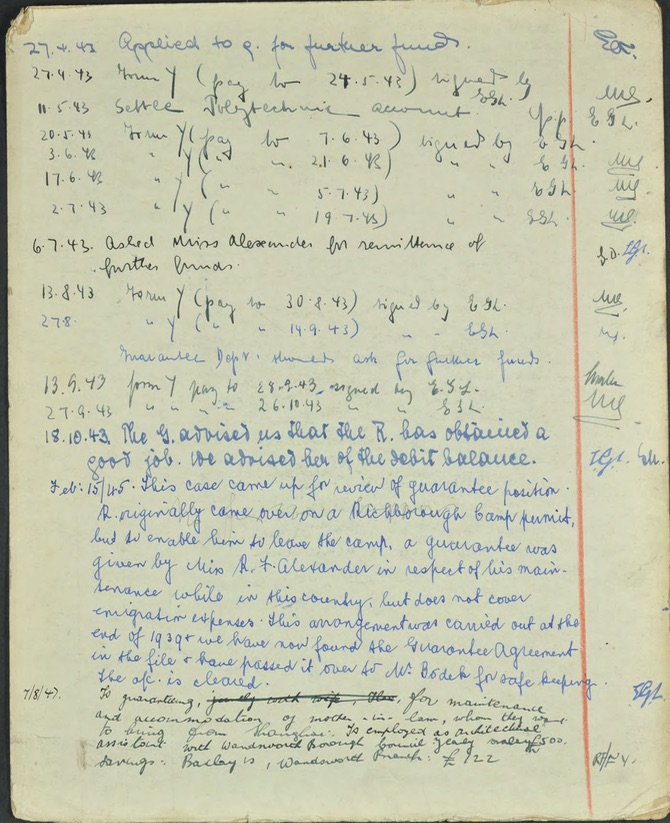 27.4.43 Applied to G. for further funds.
27.4.43 Form Y (pay to 24.5.43) signed by EGL. MG.
11.5.43 Settle Polytechnic account. pp EGL.
20.5.43 Form Y (pay to 7.6.43) signed by EGL.
3.6.43 " Y (" " 21.6.43) " " EGL. MG.
17.6.43 " Y (" " 5.7.43) " " EGL MG.
2.7.43 " Y (" " 19.7.43) " " EGL. MG.
6.7.43. Asked Miss Alexander for remittance of
further funds.
13.8.43 Form Y (pay to 30.8.43) signed by EGL. MG.
27.8. " Y (" " 14.9.43) " " EGL.
Guarantee Dept. should ask for further funds.
13.9.43 form Y pay to 28.9.43 signed by E.G.L.
27.9.43 " " " " 26.10.43 " " EGL MG
18.10.43. The G. advised us that the R. has obtained a
good job. We advised her of the debit balance.
Feb: 15/45. This case came up for review of guarantee position.
R. originally came over on a Richborough Camp permit,
but to enable him to leave the camp, a guarantee was
given by Miss R. F. Alexander in respect of his main-
tenance while in this country, but does not cover
emigration expenses. This arrangement was carried out at the
end of 1939 + we have now found the Guarantee Agreement
in the file + have passed it over to Mr. Bodek for safe keeping.
The a/c. is cleared.
7/8/47. Is guaranteeing, jointly with wife, for maintenance
and accommodation of mother-in-law, whom they want
to bring from Shanghai. Is employed as architectural
assistant with Wandsworth Borough Council yearly salary £500.
Savings: Barlays, Wandsworth Branch: £122